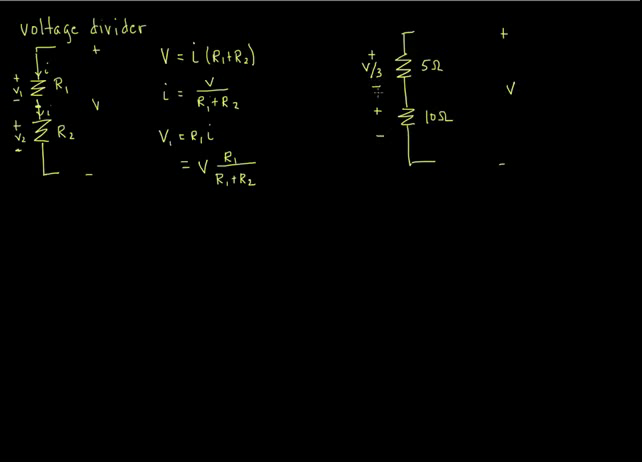 voltage divider
+
i
+ V₁ - R₁
i
V
+ V₂ - R₂
-
V = i (R₁+R₂)
i = V / R₁+R₂
V₁ = R₁ i
= V R₁ / R₁+R₂
+
+ V/3 - 5Ω
V
+ - 10Ω
-